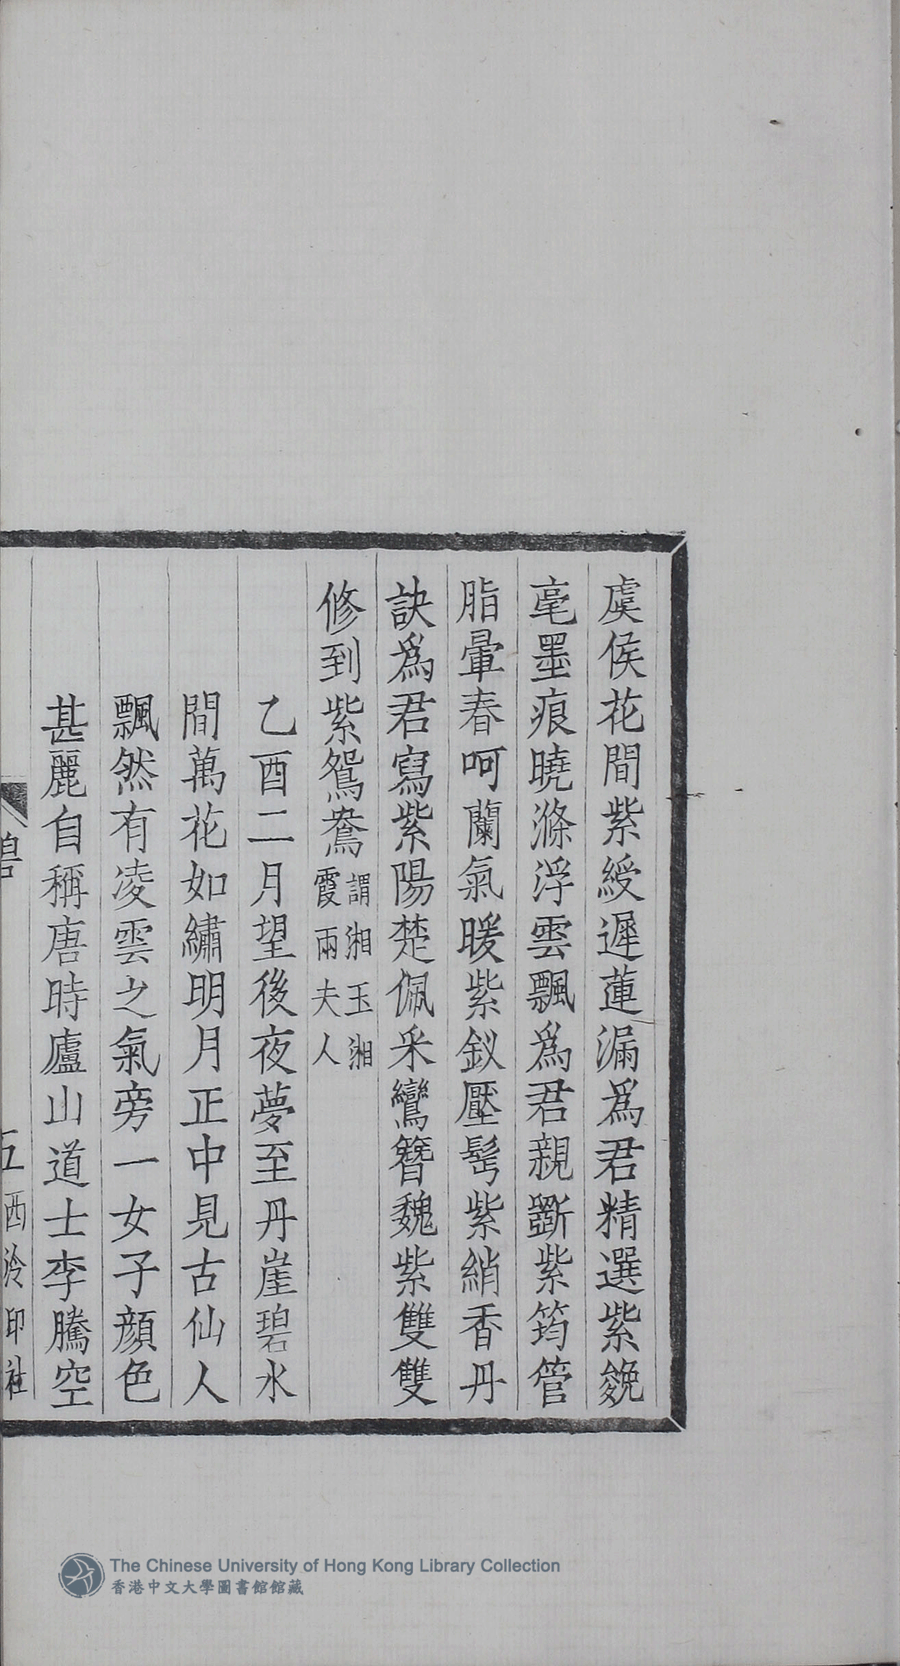 虞侯花間紫綬遲蓮漏為君精選紫㕙
毫墨痕曉滌浮雲飄為君親斵紫筠管
脂暈春呵蘭氣暖紫釵壓髩紫綃香丹
訣為君寫紫陽楚佩采鸞簪魏紫雙雙
修到紫鴛鴦謂湘玉湘
霞兩夫人
乙酉二月望後夜夢至丹崖碧水
間萬花如繡明月正中見古仙人
飄然有凌雲之氣旁一女子顏色
甚麗自稱唐時廬山道士李騰空
五 西泠印社
The Chinese University of Hong Kong Library Collection
香港中文大學圖書館館藏